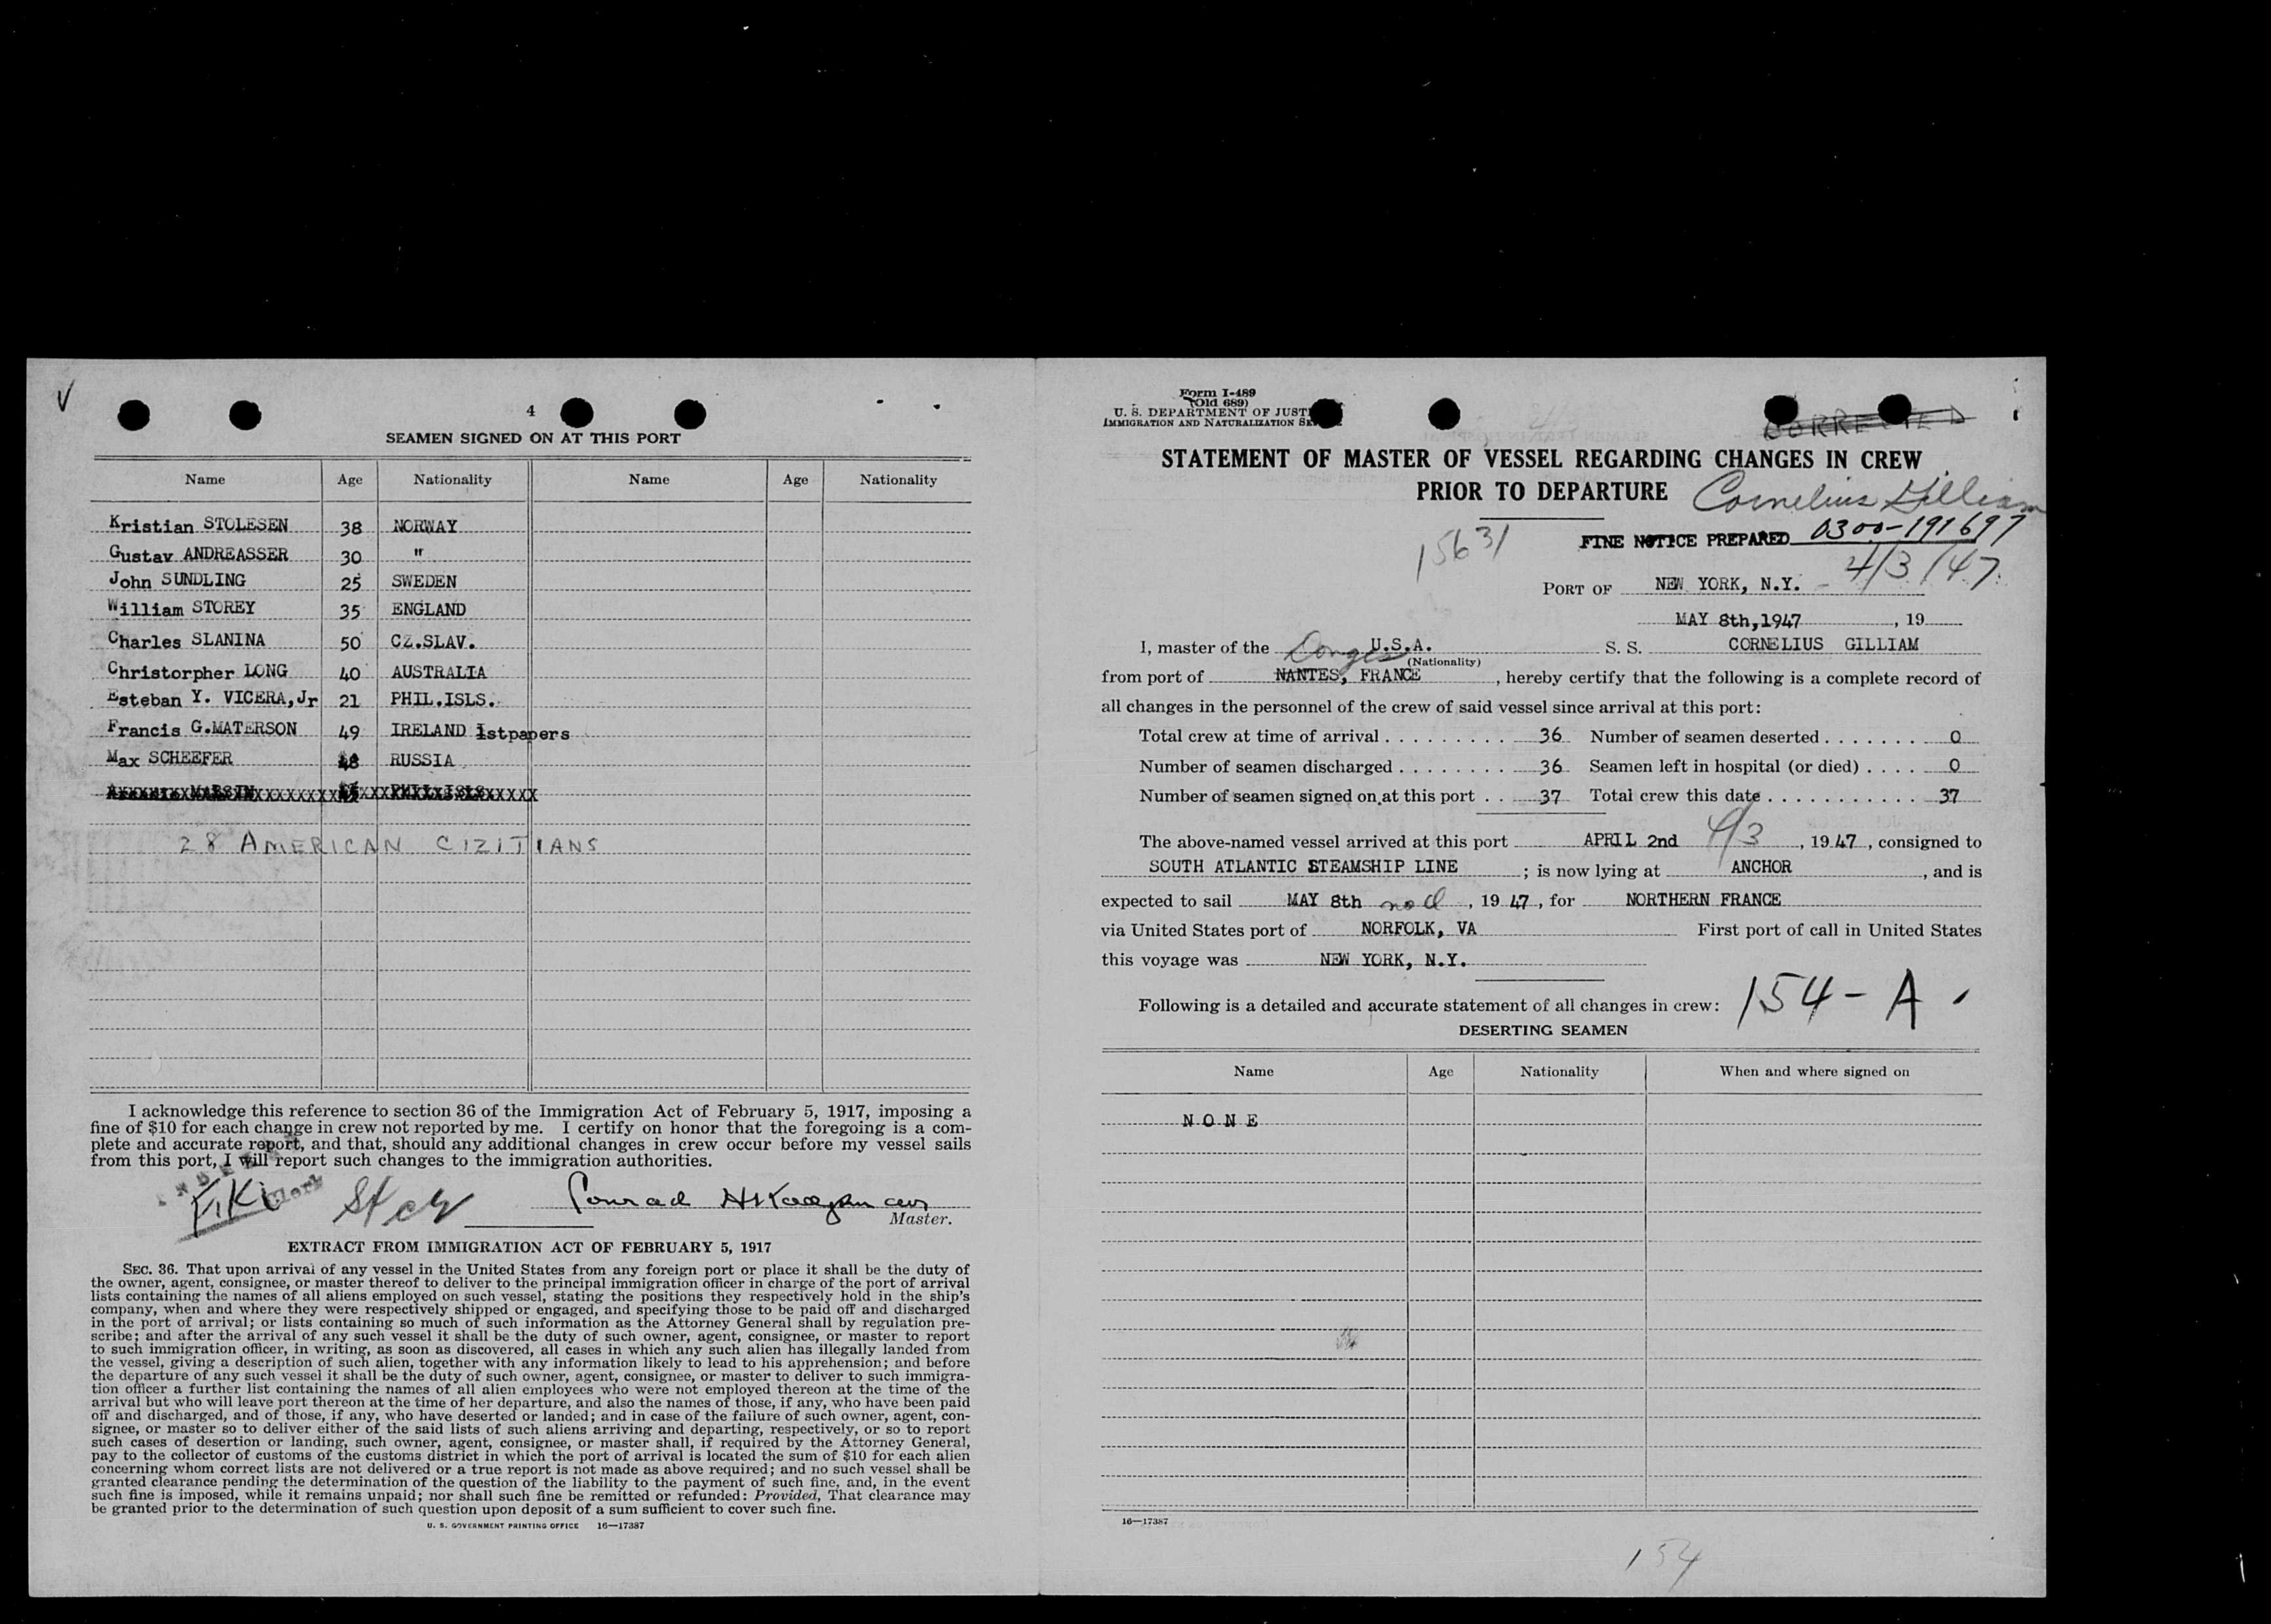 4
SEAMEN SIGNED ON AT THIS PORT
Name Age Nationality Name Age Nationality
Kristian STOLESEN 38 NORWAY
Gustav ANDREASSER 30 "
John SUNDLING 25 SWEDEN
William STOREY 35 ENGLAND
Charles SLANINA 50 CZ.SLAV.
Christorpher LONG 40 AUSTRALIA
Esteban Y. VICERA,Jr 21 PHIL.ISLS.
Francis G.MATERSON 49 IRELAND 1stpapers
Max SCHEEFER 48 RUSSIA
MARSIN PHIL.ISLS.
28 AMERICAN CIZITIANS
I acknowledge this reference to section 36 of the Immigration Act of February 5, 1917, imposing a
fine of $10 for each change in crew not reported by me. I certify on honor that the foregoing is a com-
plete and accurate report, and that, should any additional changes in crew occur before my vessel sails
from this port, I will report such changes to the immigration authorities.
Clerk
Conrad
Master.
EXTRACT FROM IMMIGRATION ACT OF FEBRUARY 5, 1917
SEC. 36. That upon arrival of any vessel in the United States from any foreign port or place it shall be the duty of
the owner, agent, consignee, or master thereof to deliver to the principal immigration officer in charge of the port of arrival
lists containing the names of all aliens employed on such vessel, stating the positions they respectively hold in the ship's
company, when and where they were respectively shipped or engaged, and specifying those to be paid off and discharged
in the port of arrival; or lists containing so much of such information as the Attorney General shall by regulation pre-
scribe; and after the arrival of any such vessel it shall be the duty of such owner, agent, consignee, or master to report
to such immigration officer, in writing, as soon as discovered, all cases in which any such alien has illegally landed from
the vessel, giving a description of such alien, together with any information likely to lead to his apprehension; and before
the departure of any such vessel it shall be the duty of such owner, agent, consignee, or master to deliver to such immigra-
tion officer a further list containing the names of all alien employees who were not employed thereon at the time of the
arrival but who will leave port thereon at the time of her departure, and also the names of those, if any, who have been paid
off and discharged, and of those, if any, who have deserted or landed; and in case of the failure of such owner, agent, con-
signee, or master so to deliver either of the said lists of such aliens arriving and departing, respectively, or so to report
such cases of desertion or landing, such owner, agent, consignee, or master shall, if required by the Attorney General,
pay to the collector of customs of the customs district in which the port of arrival is located the sum of $10 for each alien
concerning whom correct lists are not delivered or a true report is not made as above required; and no such vessel shall be
granted clearance pending the determination of the question of the liability to the payment of such fine, and, in the event
such fine is imposed, while it remains unpaid; nor shall such fine be remitted or refunded: Provided, That clearance may
be granted prior to the determination of such question upon deposit of a sum sufficient to cover such fine.
U. S. GOVERNMENT PRINTING OFFICE 16—17387
Form I-489
(Old 689)
U. S. DEPARTMENT OF JUST
IMMIGRATION AND NATURALIZATION SE
CORRECTED
STATEMENT OF MASTER OF VESSEL REGARDING CHANGES IN CREW
PRIOR TO DEPARTURE
Cornelius Gilliam
15631
FINE NOTICE PREPARED 0300-191697
4/3/47
PORT OF NEW YORK, N.Y.
MAY 8th,1947, 19
I, master of the U.S.A. S. S. CORNELIUS GILLIAM
Donges (Nationality)
from port of NANTES, FRANCE, hereby certify that the following is a complete record of
all changes in the personnel of the crew of said vessel since arrival at this port:
Total crew at time of arrival 36 Number of seamen deserted 0
Number of seamen discharged 36 Seamen left in hospital (or died) 0
Number of seamen signed on at this port 37 Total crew this date 37
The above-named vessel arrived at this port APRIL 2nd 4/3, 1947, consigned to
SOUTH ATLANTIC STEAMSHIP LINE; is now lying at ANCHOR, and is
expected to sail MAY 8th, 1947, for NORTHERN FRANCE
via United States port of NORFOLK, VA First port of call in United States
this voyage was NEW YORK, N.Y.
Following is a detailed and accurate statement of all changes in crew: 154-A
DESERTING SEAMEN
Name Age Nationality When and where signed on
NONE
16—17387
154